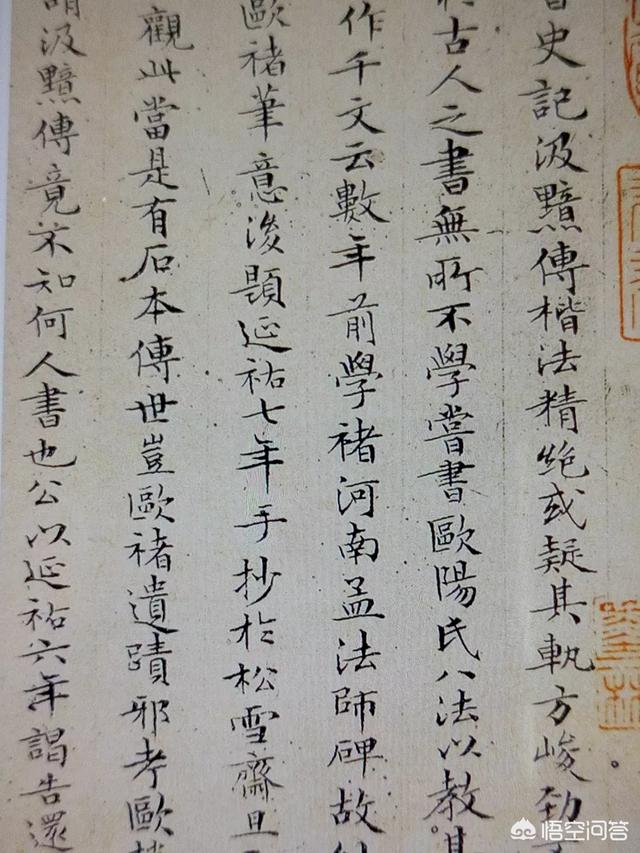 史記汲黯傳楷法精絕或疑其軌方峻勁
古人之書無所不學嘗書歐陽氏八法以教其
作千文云數年前學褚河南孟法師碑故
歐褚筆意後題延祐七年手抄於松雪齋且
觀此當是有石本傳世豈歐褚遺蹟邪考歐
謂汲黯傳竟不知何人書也公以延祐六年謁告還
悟空问答